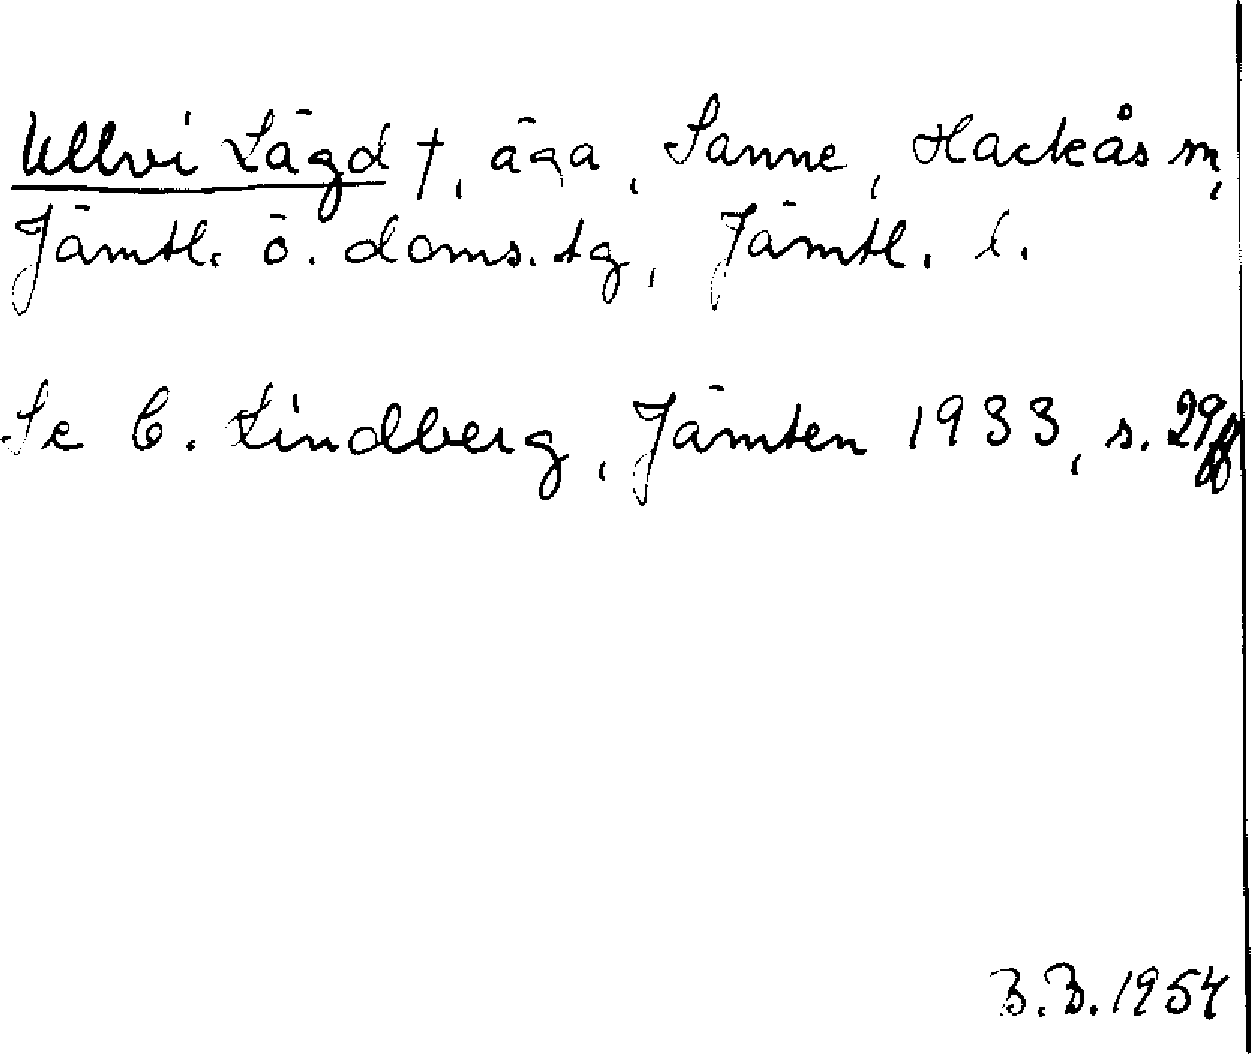 Ullvi Lägd †, äga, Sanne, Hackås sn,
Jämtl. ö. doms. tg, Jämtl. l.
Se C. Lindberg, Jämten 1933, s. 29ff
B.B. 1954